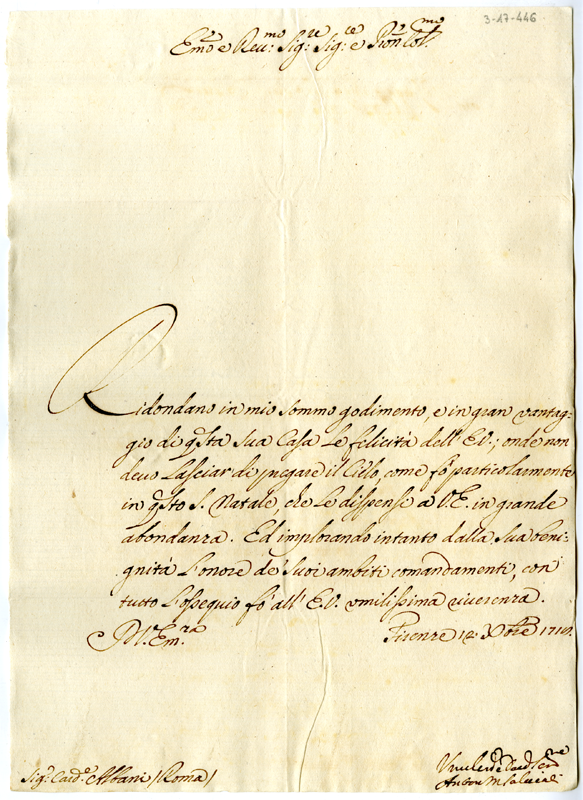 3-17-446
Em.o e Reu.mo Sig.re Sig.re e Pron Col.mo
Ridondano in mio sommo godimento, e in gran vantag:
gio di q.sta sua Casa le felicità dell' E.V.; onde non
deuo lasciar di pregare il Cielo, come fò particolarmente
in q.sto S. Natale, che le dispense à V.E. in grande
abondanza. Ed implorando intanto dalla sua beni:
gnità l'onore de' suoi ambiti comandamenti, con
tutto l'ossequio fò all' E.V. vmilissima riuerenza.
D V. Em.ra Firenze 12. Xbre
Sig.r Card.e Albani (Roma)
Anton M. Saluiati